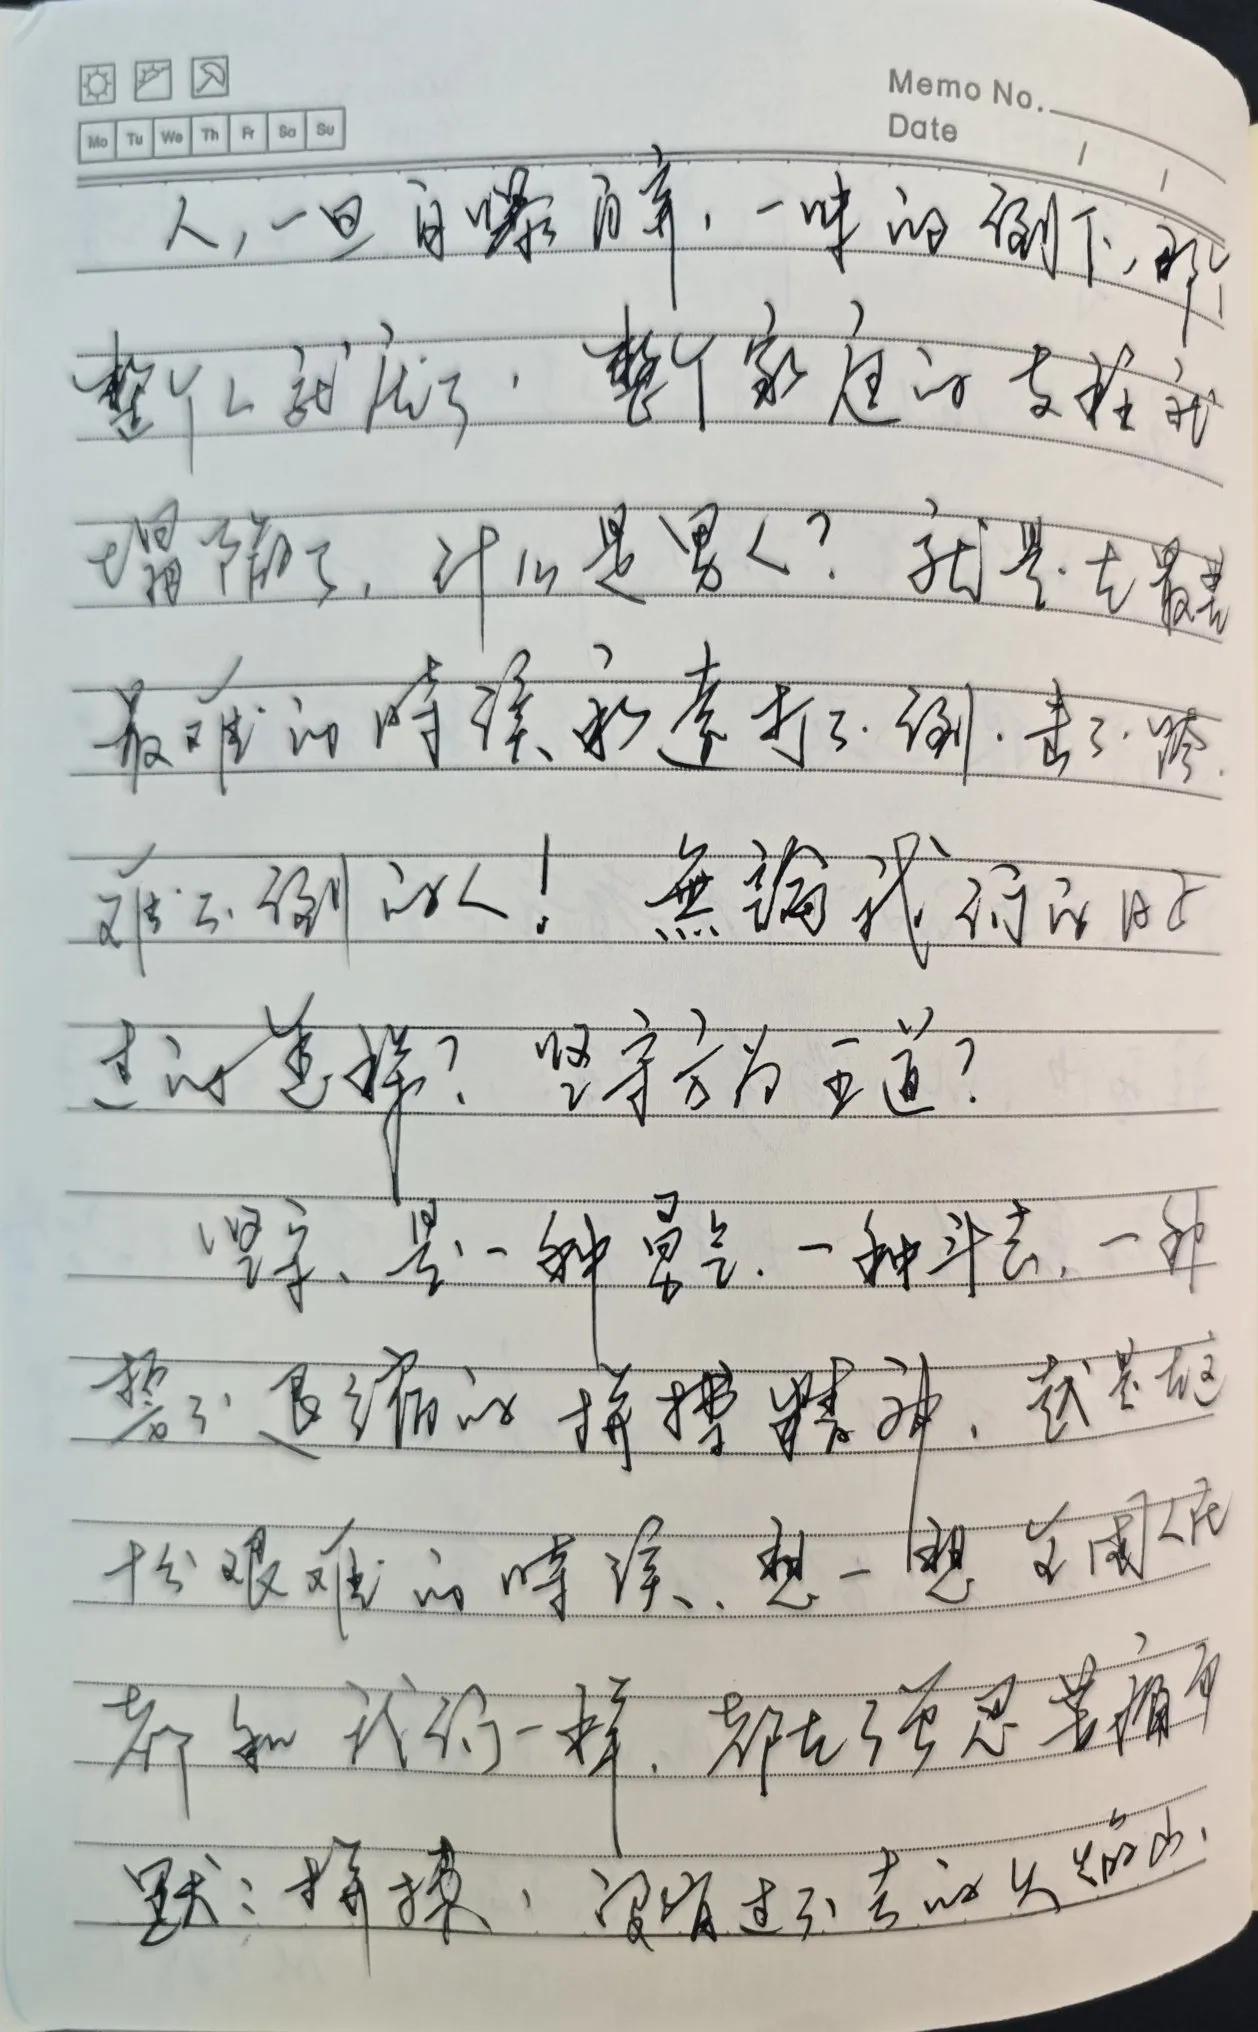 Memo No.
Date
Mo Tu We Th Fr Sa Su
人,一旦自暴自弃,一味的倒下,那
整个人就废了,整个家庭的支柱就
塌下了,什么是男人?就是在最苦
最难的时候永远打不倒.击不垮.
难不倒的人!無論我们的日子
过的怎样?坚守方为王道?
坚守、是一种勇气.一种斗志,一种
誓不退缩的拼搏精神,越是在这
十分艰难的時候、想一想 全国人民
都和我们一样,都在强忍苦痛
默默拼搏,没有过不去的火焰山,